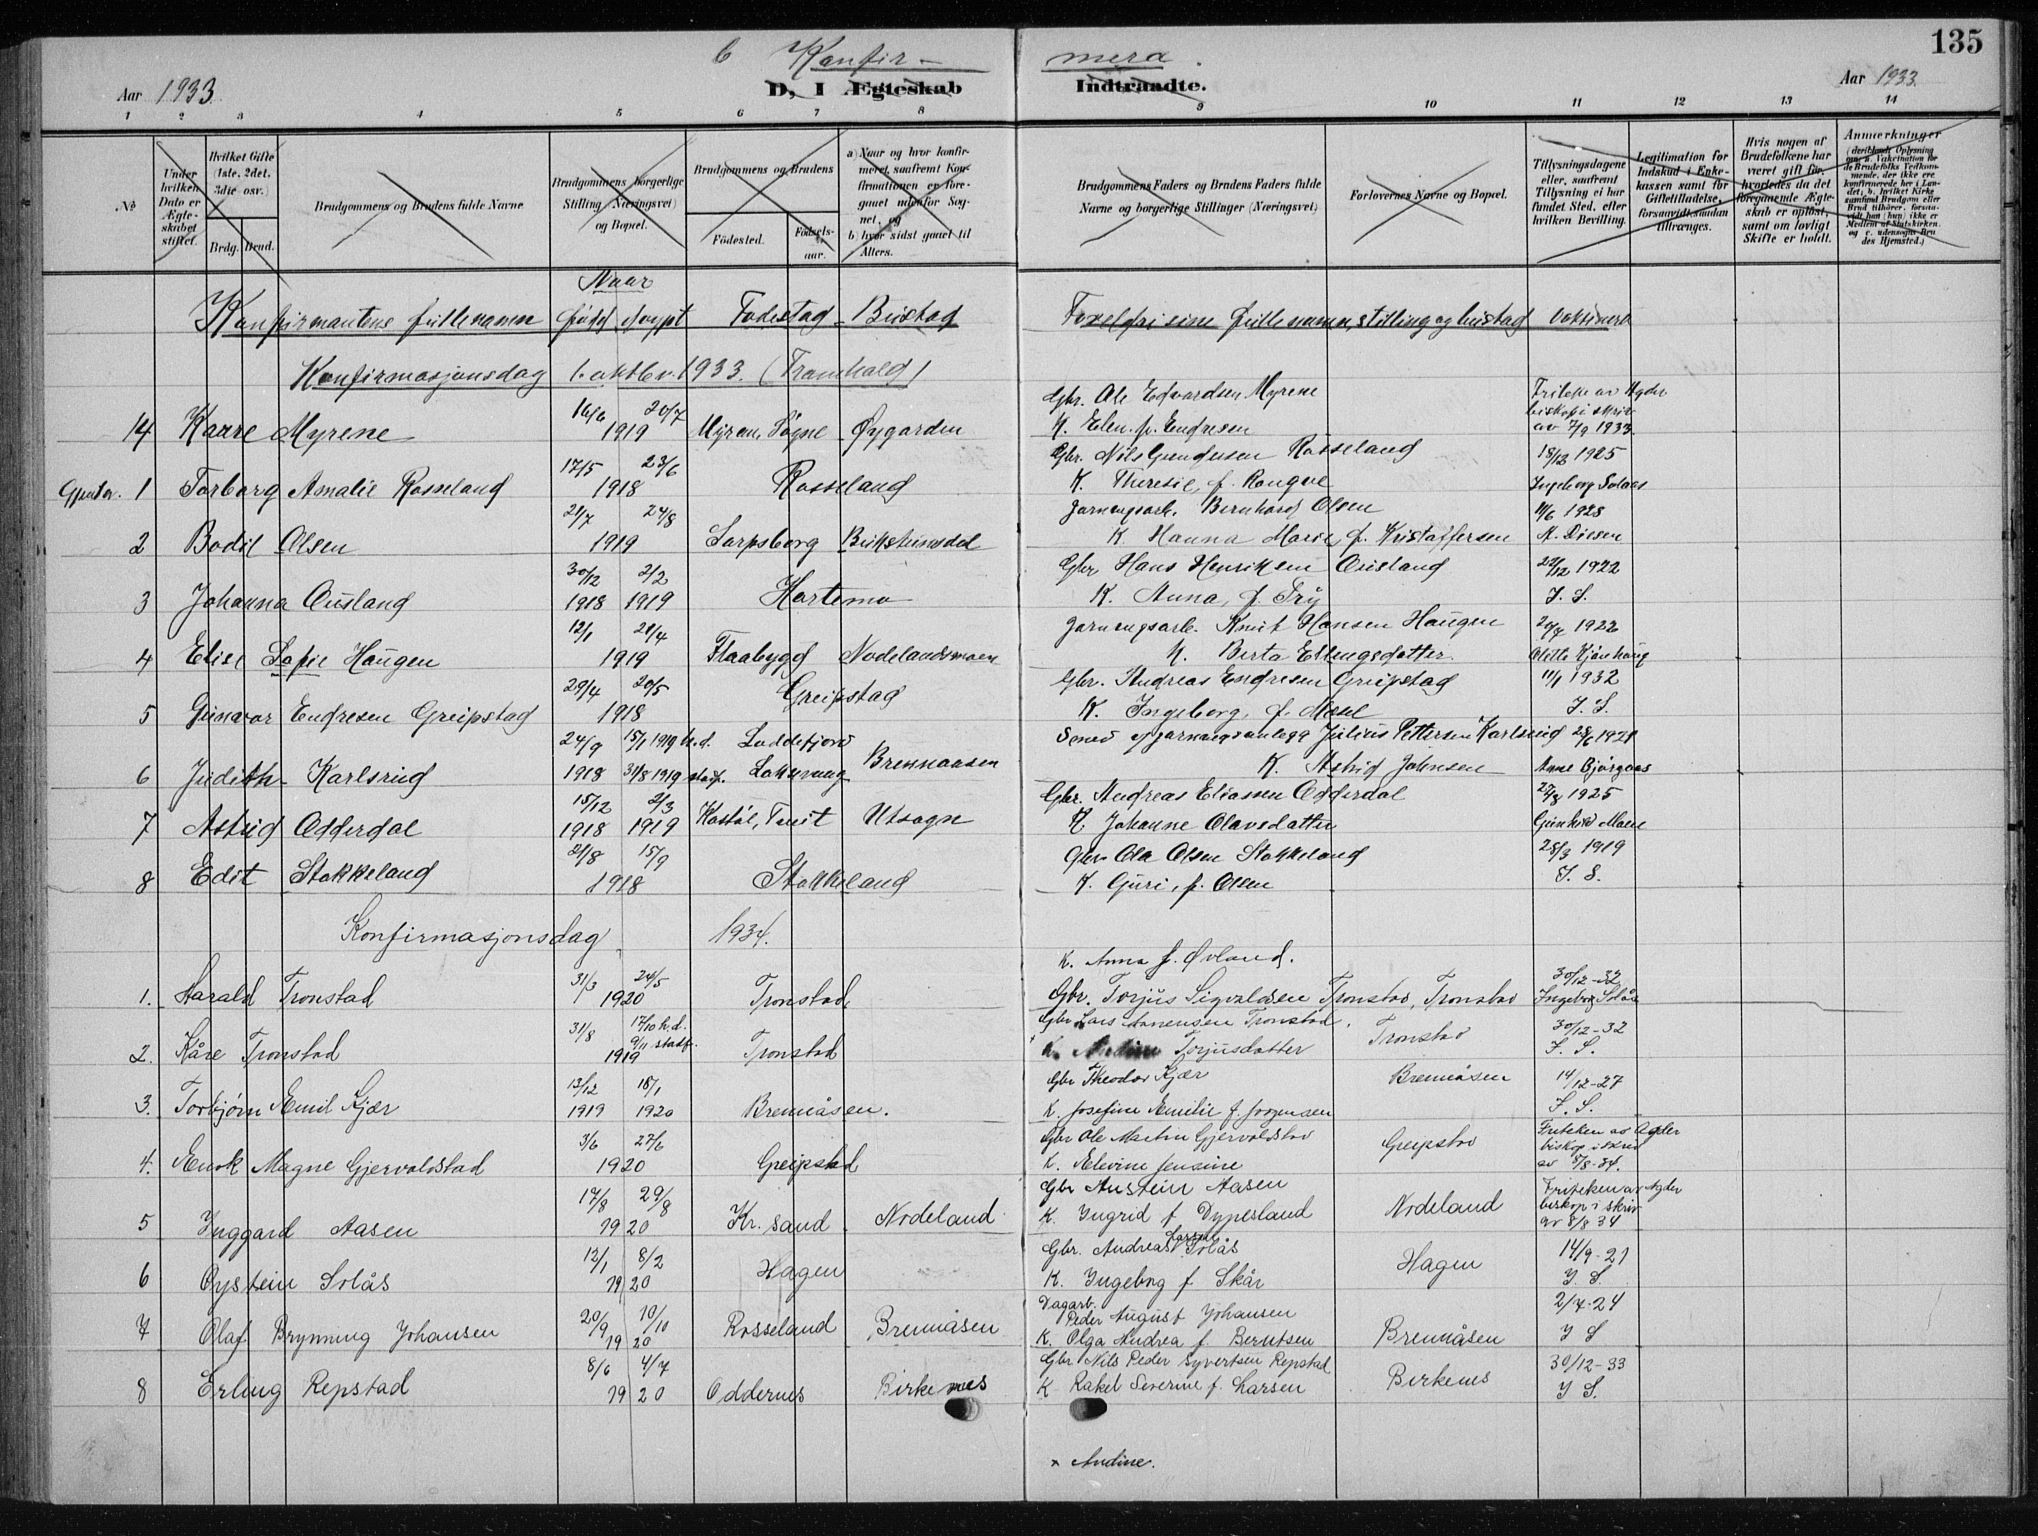 135
C Konfir- mera
Aar 1933. D, I Ægteskab Indtraadte. Aar 1933.
1 2 3 4 5 6 7 8 9 10 11 12 13 14
№
Under hvilken Dato er Ægteskabet stiftet.
Hvilket Gifte (1ste, 2det, 3die osv.)
Brdg. Brud.
Brudgommens og Brudens fulde Navne
Brudgommens borgerlige Stilling (Næringsvei) og Bopæl.
Brudgommens og Brudens
Födested. Födsels-aar.
a) Naar og hvor konfirmeret, saafremt Konfirmationen er foregaaet udenfor Sognet, og
b) hvor sidst gaaet til Alters.
Brudgommens Faders og Brudens Faders fulde Navne og borgerlige Stillinger (Næringsvei)
Forlovernes Navne og Bopæl.
Tillysningsdagene eller, saafremt Tillysning ei har fundet Sted, efter hvilken Bevilling.
Legitimation for Indskud i Enkekassen samt for Giftetilladelse, forsaavidt saadan tiltrænges.
Hvis nogen af Brudefolkene har været gift för, hvorledes da det foregaaende Ægteskab er oplöst, samt om lovligt Skifte er holdt.
Anmærkninger (deriblandt Oplysning om: a. Vakcination for de Brudefolks Vedkommende, der ikke ere konfirmerede her i Landet; b. hvilket Kirkesamfund Brudgom eller Brud tilhörer, forsaavidt han (hun) ikke er Medlem af Statskirken, og c. udensogns Brudes Hjemsted.)
Naar
Konfirmantens fulle namn född döypt Fødestad Bustad Foreldri sine fulle namn, stilling og bustad Vaksinert
Konfirmasjonsdag 1. oktbr. 1933. (Framhald)
Gbr. Ole Edvardsen Myrene Friteke av Agder
14 Kaare Myrene 16/6 20/7 1919 Myren, Søgne Øygarden K. Elen f. Endresen biskop i skriv av 7/9 1933.
Gbr. Nils Gundersen Rosseland 18/12 1925
Gjentor. 1 Torborg Amalie Rosseland 17/5 23/6 1918 Rosseland K. Theresie, f. Kongve Ingeborg Solaas
Jarnvegsarb. Bernhard Olsen 11/6 1928
2 Bodil Olsen 21/7 24/8 1919 Sarpsborg K. Hanna Marie, f. Kristoffersen M. Diesen
Gbr. Hans Henriksen Ousland 22/12 1922
3 Johanna Ousland 30/12 1918 2/2 1919 Hortemo K. Anna, f. Try J. S.
Jarnvegsarb. Knut Hansen Haugen 1922
4 Elise Sofie Haugen 12/1 21/4 1919 Flaabygd Nodelandsmoen K. Berta Ellingsdatter.
Gbr. Andreas Endresen Greipstad 11/1 1932
5 Gunvor Endresen Greipstad 29/4 20/5 1918 Greipstad K. Ingeborg, f. Mosel J. S.
Smed Julius Pettersen Karlsrud 1921
6 Judith Karlsrud 24/9 1918 15/1 1919 h.d. 31/8 1919 stadf. Loddefjord Laksevaag Brennaasen K. Astrid Johnsen Anne Bjørgaas
Gbr. Andreas Eliassen Odderdal 27/8 1925
7 Astrid Odderdal 15/12 1918 2/3 1919 Kostøl, Tveit Utsogn K. Johanne Olavsdatter
Gbr. Ola Olsen Stokkeland 28/3 1919
8 Edit Stokkeland 21/8 15/9 1918 Stokkeland K. Guri, f. Olsen J. S.
Konfirmasjonsdag 1934.
K. Anna f. Øvland.
1. Harald Tronstad 31/3 24/5 1920 Tronstad Gbr. Torjus Sigvaldsen Tronstad, Tronstad 30/12-32 Ingeborg Solås
Gbr. Lars Tronstad. Tronstad 30/12-32
2. Kåre Tronstad 31/8 17/10 h.d. 9/11 stadf. 1919 Tronstad x K. Andine Torjusdatter J. S.
Gbr. Theodor Kjær Brennåsen 14/12-27
3. Torbjørn Emil Kjær 13/12 1919 18/1 1920 Brennåsen. K. Josefine Emilie f. Jorgensen J. S.
Gbr. Ole Martin Gjervoldstad Greipstad Friteken av Agder
4. Enok Magne Gjervoldstad 3/6 27/6 1920 Greipstad K. Elevine Jensine biskop i skriv av 8/8-34.
Gbr. Austein Aasen Nodeland Friteken av Agder
5 Inggard Aasen 17/8 29/8 1920 Kr. sand Nodeland K. Ingrid f. Dypesland biskop i skriv av 8/8 34
Gbr. Andreas Larsen Solås Hagen 14/9-21
6 Øystein Solås 12/1 8/2 1920 Hagen K. Ingeborg f. Skår J. S.
Dagarb. Peder August Johansen 2/7-24
7 Olaf Brynning Johansen 20/9 10/10 1920 Rosseland Brennåsen K. Olga Andrea f. Berntsen Brennåsen J S
Gbr. Nils Peder Syvertsen Repstad Birkenes 30/12-33
8 Erling Repstad 8/6 4/7 1920 Oddernes Birkenes K Rakel Severine f. Larsen J S.
x Andine.